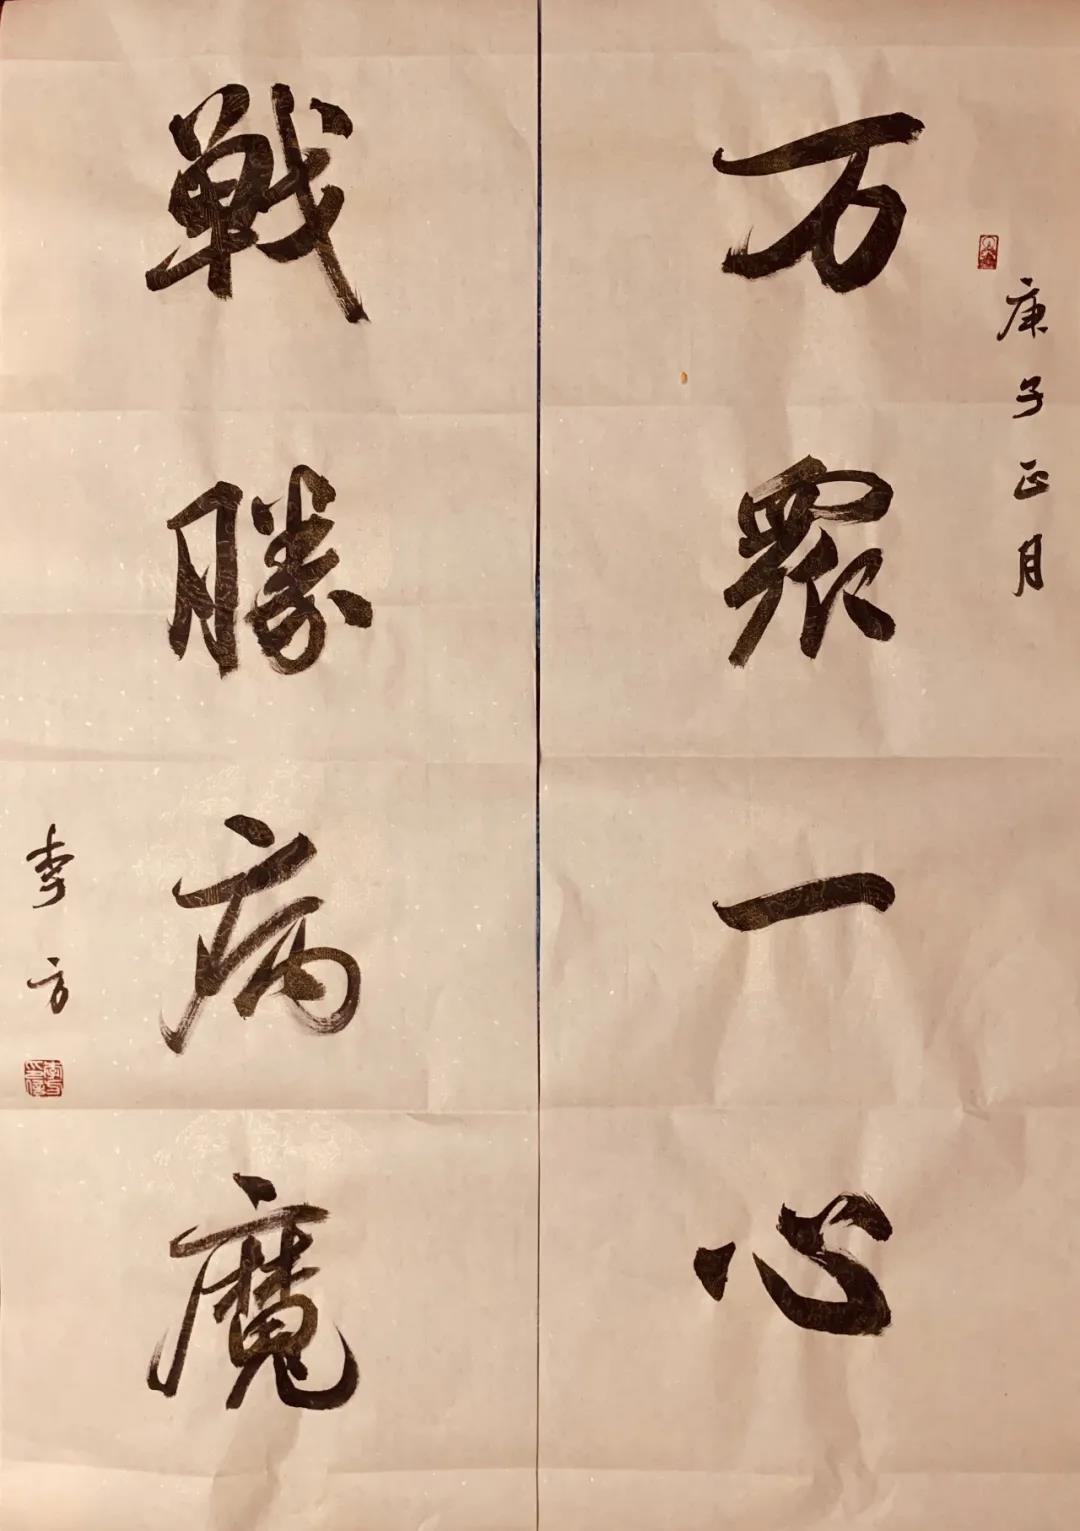 庚子正月
万众一心
戰勝病魔
李方